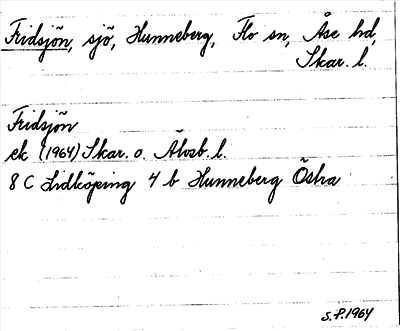 Fridsjön, sjö, Hunneberg, Flo sn, Åse hd,
Skar. l.
Fridsjön
ek (1964) Skar. o. Älvsb. l.
8 C Lidköping 4 b Hunneberg Östra
S.P. 1964